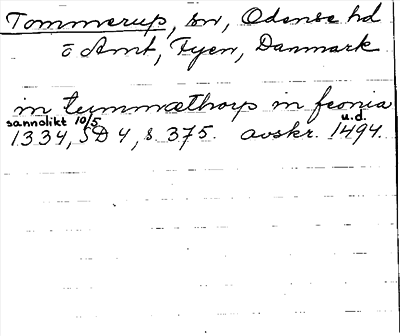 Tommerup, sn, Odense hd
o Amt, Fyen, Danmark
in tymmæthorp in feonia
sannolikt 10/5 u.d.
1334, SD 4, s. 375. avskr. 1494.